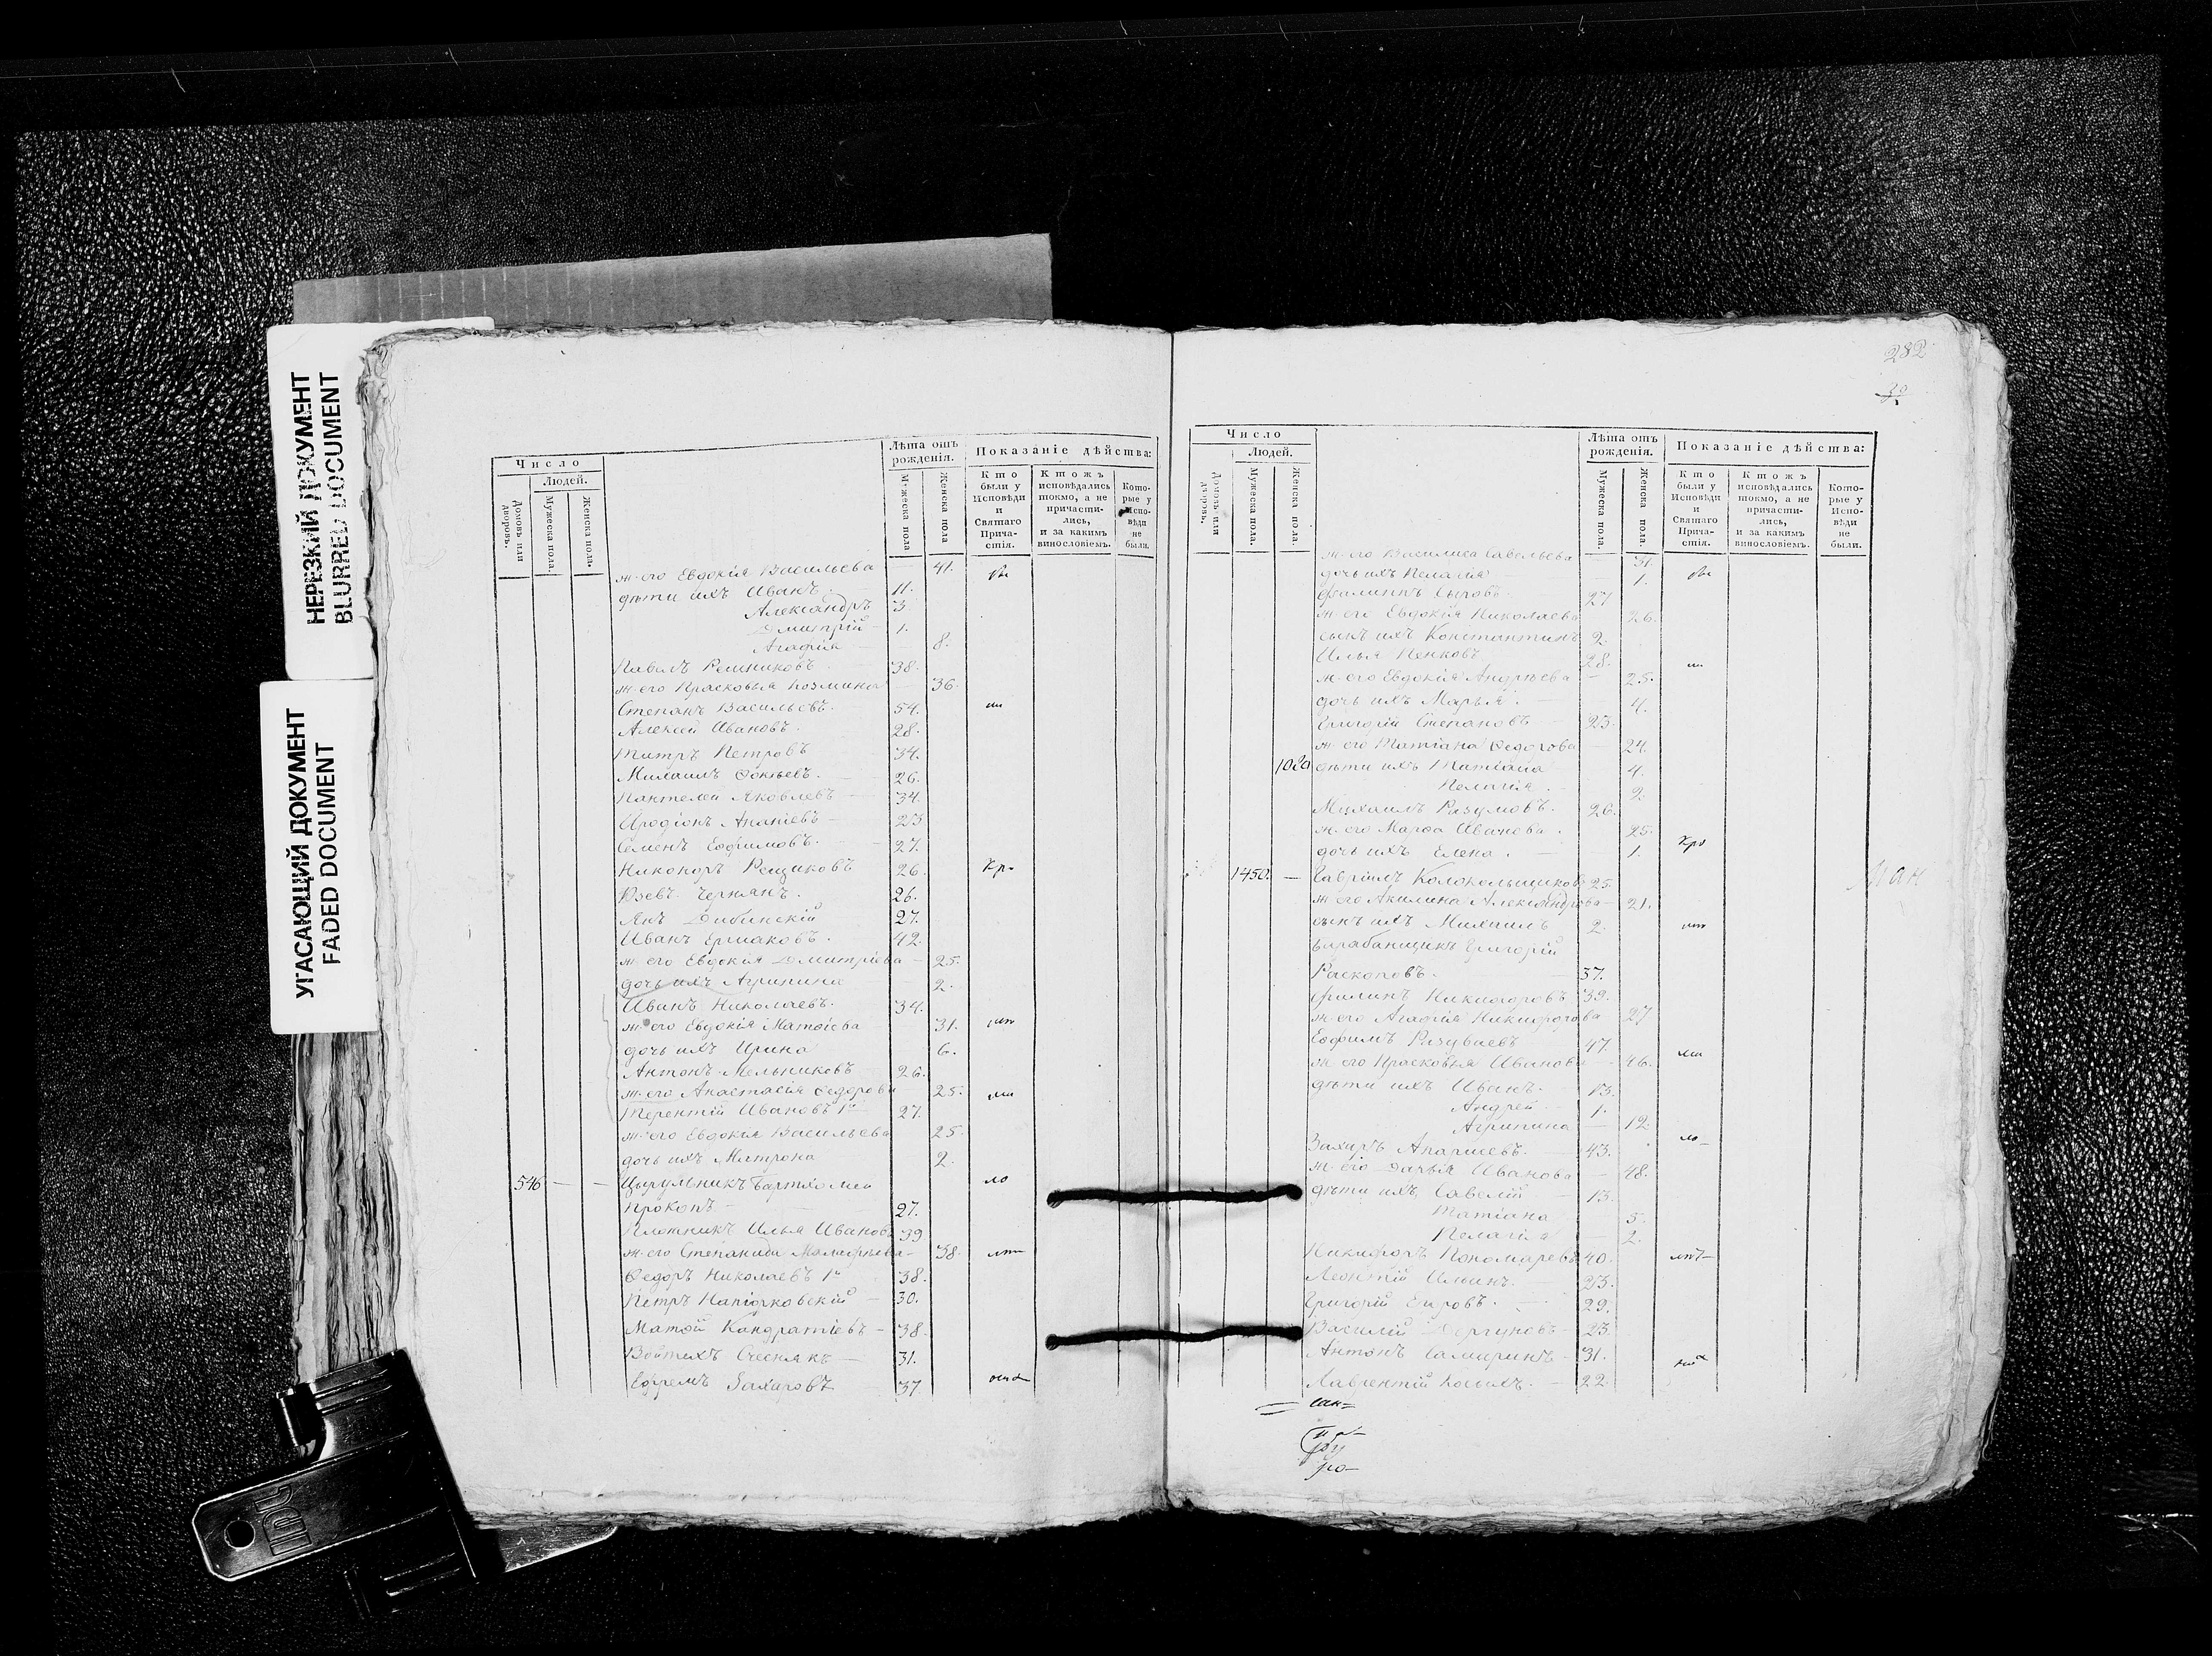 НЕРЕЗКИЙ ДОКУМЕНТ
BLURRED DOCUMENT
УГАСАЮЩИЙ ДОКУМЕНТ
FADED DOCUMENT
Число
Людей.
Домовъ или дворовъ.
Мужеска пола.
Женска пола.
Лѣта отъ рожденія.
Мужеска пола
Женска пола
Показаніе дѣйства:
Кто были у Исповѣди и Святаго Причастія.
Ктожъ исповѣдались токмо, а не причастились, и за какимъ винословіемъ.
Которые у Исповѣди не были.
ж. его Евдокія Васильева 41.
дѣти ихъ Иванъ 11.
Александръ 3.
Дмитрій 1.
Агафія 8.
Павелъ Решниковъ 38.
ж. его Прасковья Козмина 36.
Степанъ Васильевъ. 54.
Алексѣй Ивановъ. 28.
Петровъ 34.
26.
Пантелей Яковлевъ 34.
Иродіонъ Ананіевъ 23
Семенъ Ефимовъ. 27.
Никоноръ 26.
26.
Янъ 27.
Иванъ Ермаковъ. 42.
ж. его Евдокія Дмитріева 25.
дочь ихъ Агрипина 2.
Иванъ Николаевъ. 34.
ж. его Евдокія Матѳіева 31.
дочь ихъ Ирина 6.
Антонъ Мельниковъ 26.
ж. его Анастасія Ѳедорова 25.
Терентій Ивановъ 1й 27.
ж. его Евдокія Васильева 25.
дочь ихъ Матрона 2.
546 — — Цырульникъ Бартломей ло
Прокопъ 27.
Плотникъ Илья Ивановъ 39
ж. его Степанида 38.
Ѳедоръ Николаевъ 1й 38.
Петръ 30.
Матѳій Кондратіевъ 38.
Войтехъ 31.
Ефремъ Захаровъ 37
282
Число
Людей.
Домовъ или дворовъ.
Мужеска пола.
Женска пола.
Лѣта отъ рожденія.
Мужеска пола.
Женска пола.
Показаніе дѣйства:
Кто были у Исповѣди и Святаго Причастія.
Ктожъ исповѣдались токмо, а не причастились, и за какимъ винословіемъ.
Которые у Исповѣди не были.
ж. его Василиса Савельева 31.
дочь ихъ Пелагія 1.
Филиппъ 27
ж. его Евдокія Николаева 26.
сынъ ихъ Константинъ 2.
Илья Пенковъ 28.
ж. его Евдокія Андрѣева 25.
дочь ихъ Марья. 4.
Григорій Степановъ 23.
ж. его Татіана Ѳедорова 24.
дѣти ихъ Татіана 4.
Пелагія. 2.
Михаилъ Разумовъ. 26.
ж. его Марѳа Иванова. 25.
дочь ихъ Елена. 1.
1450. — Гавріилъ Колокольщиковъ 25.
ж. его Акилина Александрова 21.
сынъ ихъ Михаилъ 2.
барабанщикъ Григорій
Раскоповъ. 37.
Филипъ Никифоровъ 39.
ж. его Агафія Никифорова 27
Ефимъ Разуваевъ 47.
ж. его Прасковья Иванова 46.
дѣти ихъ Иванъ. 13.
Андрей 1.
Агрипина 12.
Захаръ 43.
ж. его Дарья Иванова 48.
дѣти ихъ Савелій 13.
Татіана 5.
Пелагія 2.
Никифоръ Пономаревъ 40.
Леонтій Ильинъ. 23.
Григорій 29.
Василій Дергуновъ 23.
Антонъ 31.
Лаврентій 22.